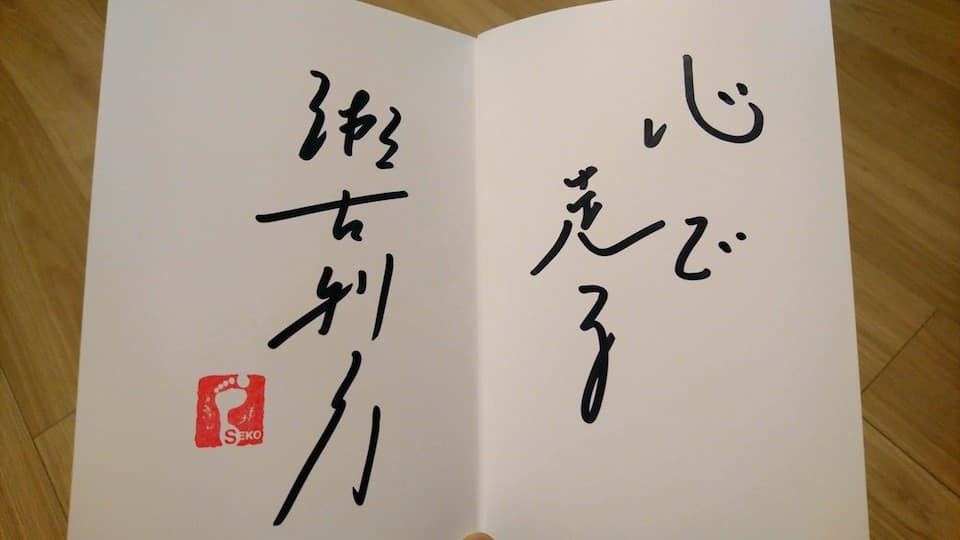 心で
走る
瀬古利彦
SEKO